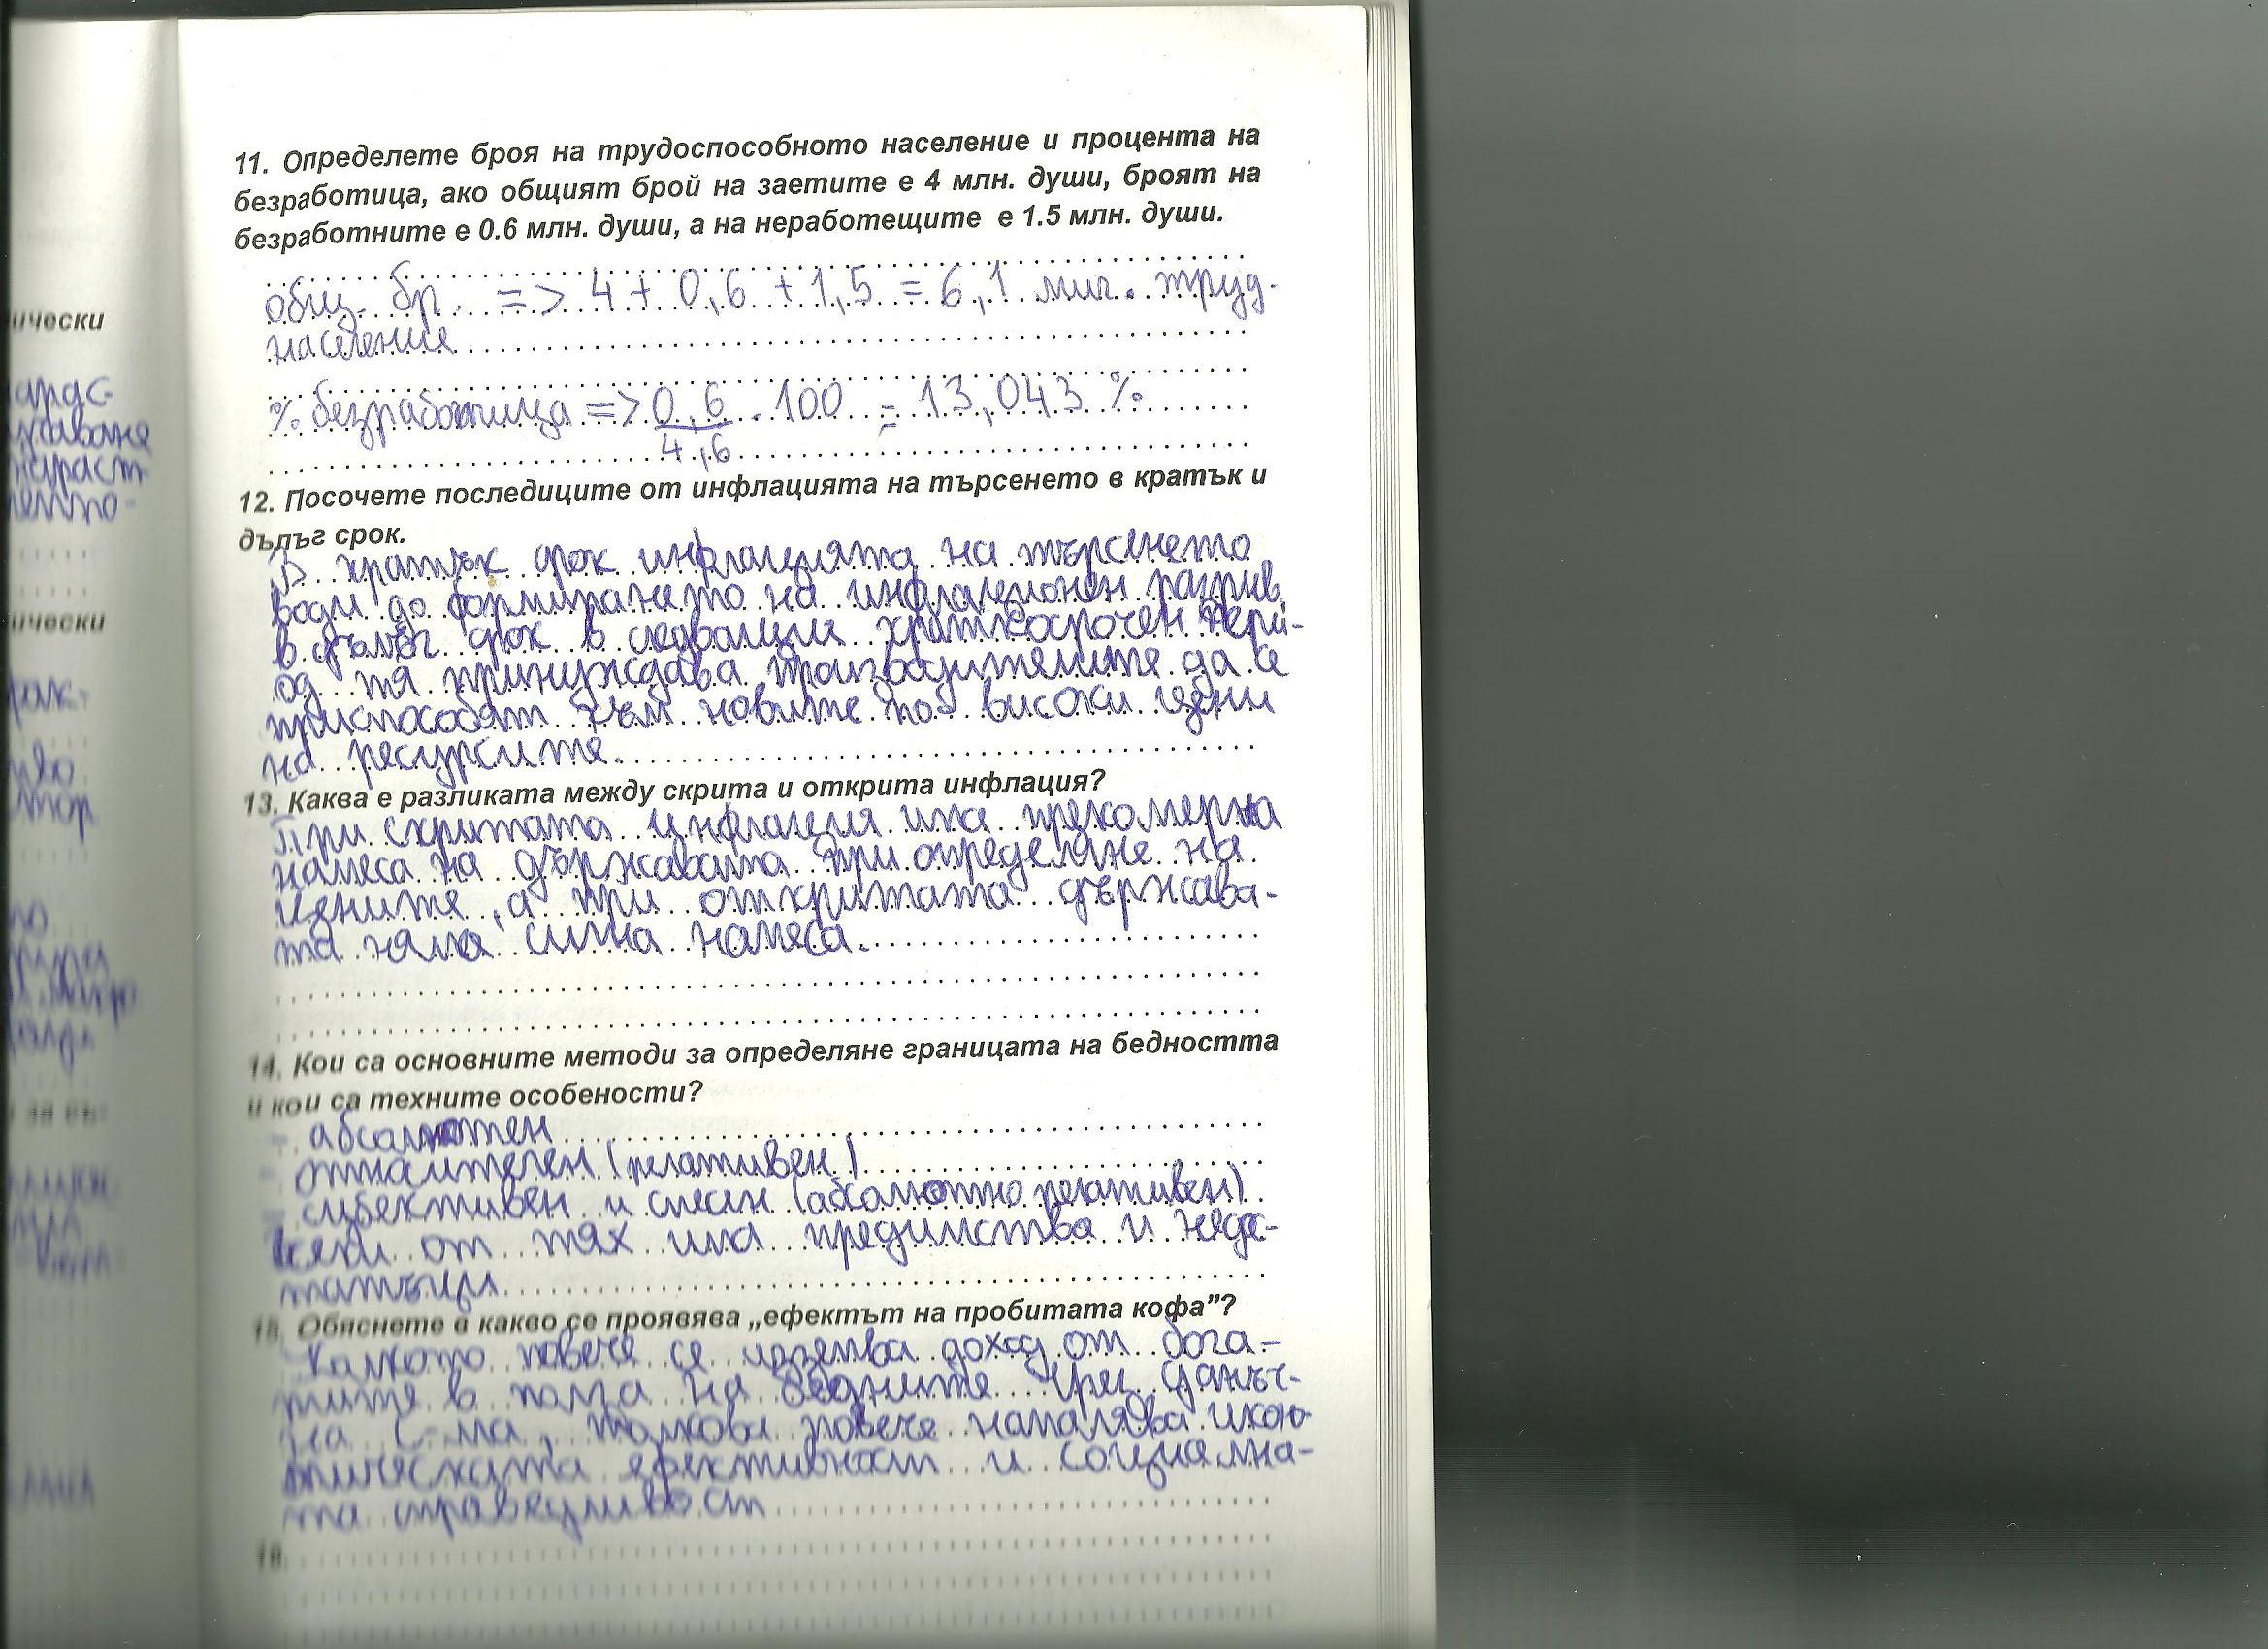 11. Определете броя на трудоспособното население и процента на
безработица, ако общият брой на заетите е 4 млн. души, броят на
безработните е 0.6 млн. души, а на неработещите е 1.5 млн. души.
общ. бр. => 4 + 0,6 + 1,5 = 6,1 млн. труд.
население
% безработица => 0,6 . 100 = 13,043 %
4,6
12. Посочете последиците от инфлацията на търсенето в кратък и
дълъг срок.
В кратък срок инфлацията на търсенето
води до формирането на инфлационен разрив,
в дълъг срок в следващия краткосрочен пери-
од тя принуждава производителите да се
приспособят към новите по-високи цени
на ресурсите.
13. Каква е разликата между скрита и открита инфлация?
При скритата инфлация има прекомерна
намеса на държавата при определяне на
цените, а при откритата държава-
та няма силна намеса.
14. Кои са основните методи за определяне границата на бедността
и кои са техните особености?
- абсолютен
- относителен (релативен)
- субективен и смесен (абсолютно релативен)
всеки от тях има предимства и недос-
татъци
15. Обяснете в какво се проявява „ефектът на пробитата кофа”?
Колкото повече се изземва доход от бога-
тите в полза на бедните чрез данъч-
на с-ма, толкова повече намалява иконо-
мическата ефективност и социална-
та справедливост
16.
ически
ически